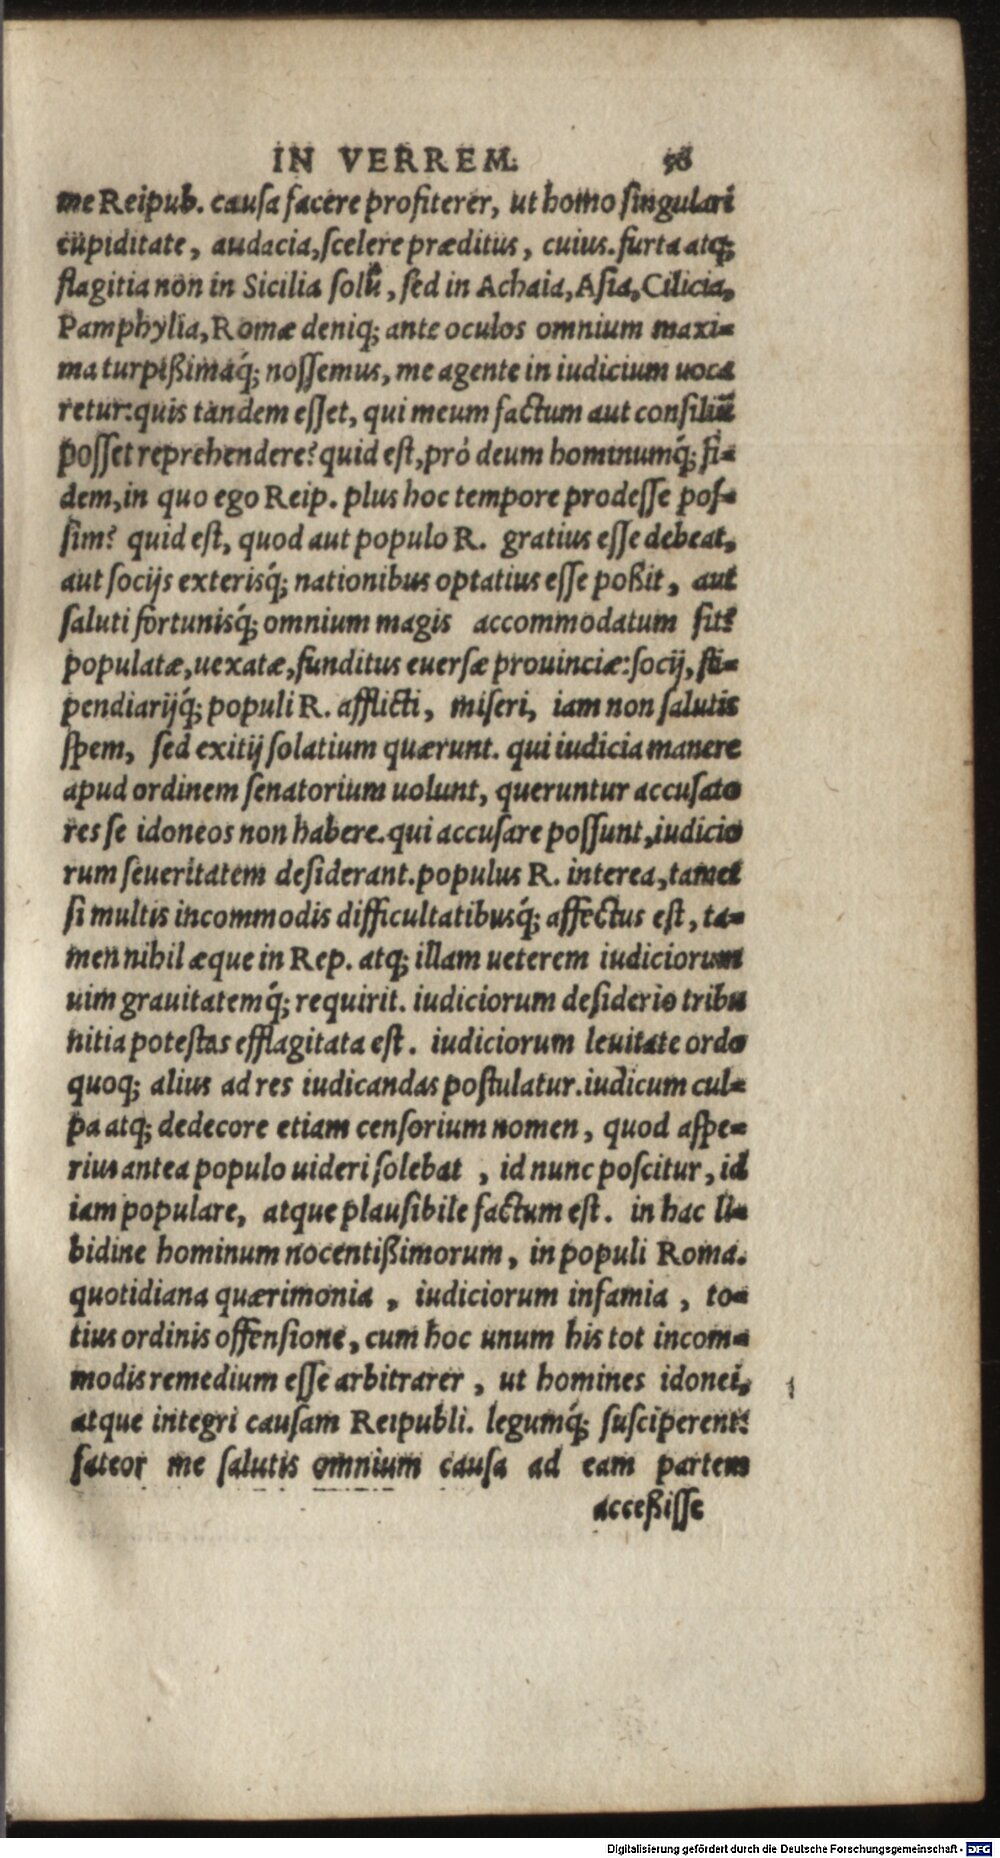 IN VERREM. 58
me Reipub. causa facere profiterer, ut homo singulari
cupiditate, audacia, scelere præditus, cuius. furta atq;
flagitia non in Sicilia solũ, sed in Achaia, Asia, Cilicia,
Pamphylia, Romæ deniq; ante oculos omnium maxi-
ma turpißimaq́; nossemus, me agente in iudicium uoca
retur: quis tandem esset, qui meum factum aut consiliũ
posset reprehendere? quid est, pró deum hominumq́; fi-
dem, in quo ego Reip. plus hoc tempore prodesse pos-
sim? quid est, quod aut populo R. gratius esse debeat,
aut socijs exterisq́; nationibus optatius esse poßit, aut
saluti fortunisq́; omnium magis accommodatum sit?
populatæ, uexatæ, funditus euersæ prouinciæ: socij, sti-
pendiarijq́; populi R. afflicti, miseri, iam non salutis
spem, sed exitij solatium quærunt. qui iudicia manere
apud ordinem senatorium uolunt, queruntur accusato
res se idoneos non habere. qui accusare possunt, iudicio
rum seueritatem desiderant. populus R. interea, tamet
si multis incommodis difficultatibusq́; affectus est, ta-
men nihil æque in Rep. atq; illam ueterem iudiciorum
uim grauitatemq́; requirit. iudiciorum desiderio tribu
nitia potestas efflagitata est. iudiciorum leuitate ordo
quoq; alius ad res iudicandas postulatur. iudicum cul-
pa atq; dedecore etiam censorium nomen, quod aspe-
rius antea populo uideri solebat, id nunc poscitur, id
iam populare, atque plausibile factum est. in hac li-
bidine hominum nocentißimorum, in populi Roma.
quotidiana quærimonia, iudiciorum infamia, to-
tius ordinis offensione, cum hoc unum his tot incom-
modis remedium esse arbitrarer, ut homines idonei,
atque integri causam Reipubli. legumq́; susciperent:
fateor me salutis omnium causa ad eam partem
acceßisse
Digitalisierung gefördert durch die Deutsche Forschungsgemeinschaft - DFG